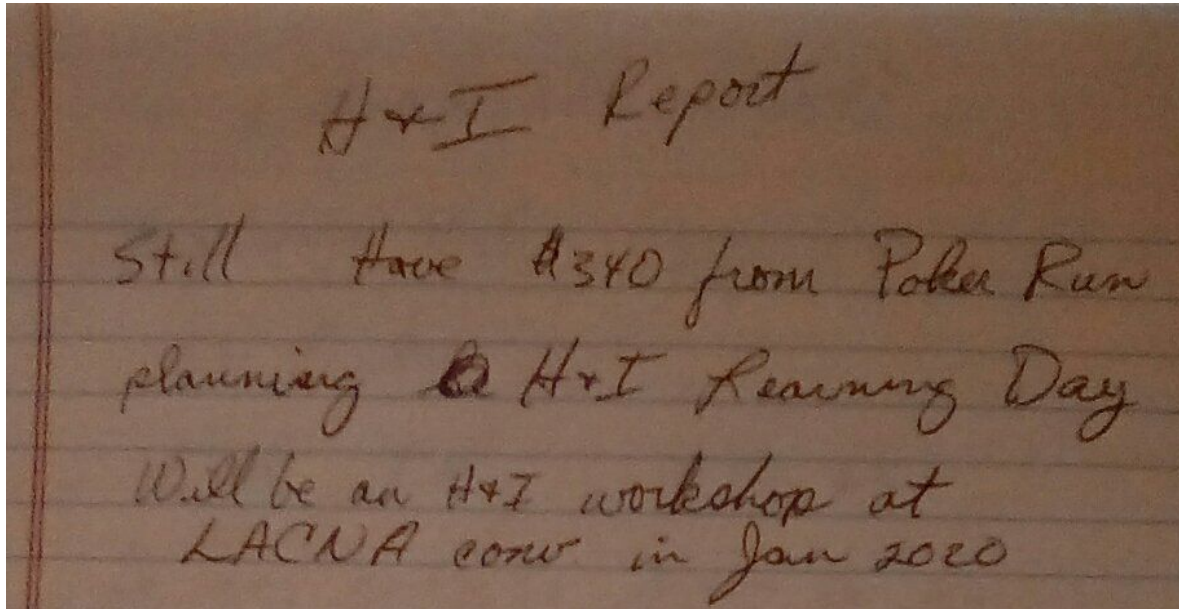 H & I Report
Still Have $340 from Poker Run
planning a H & I Learning Day
Will be an H & I workshop at
LACNA conv in Jan 2020